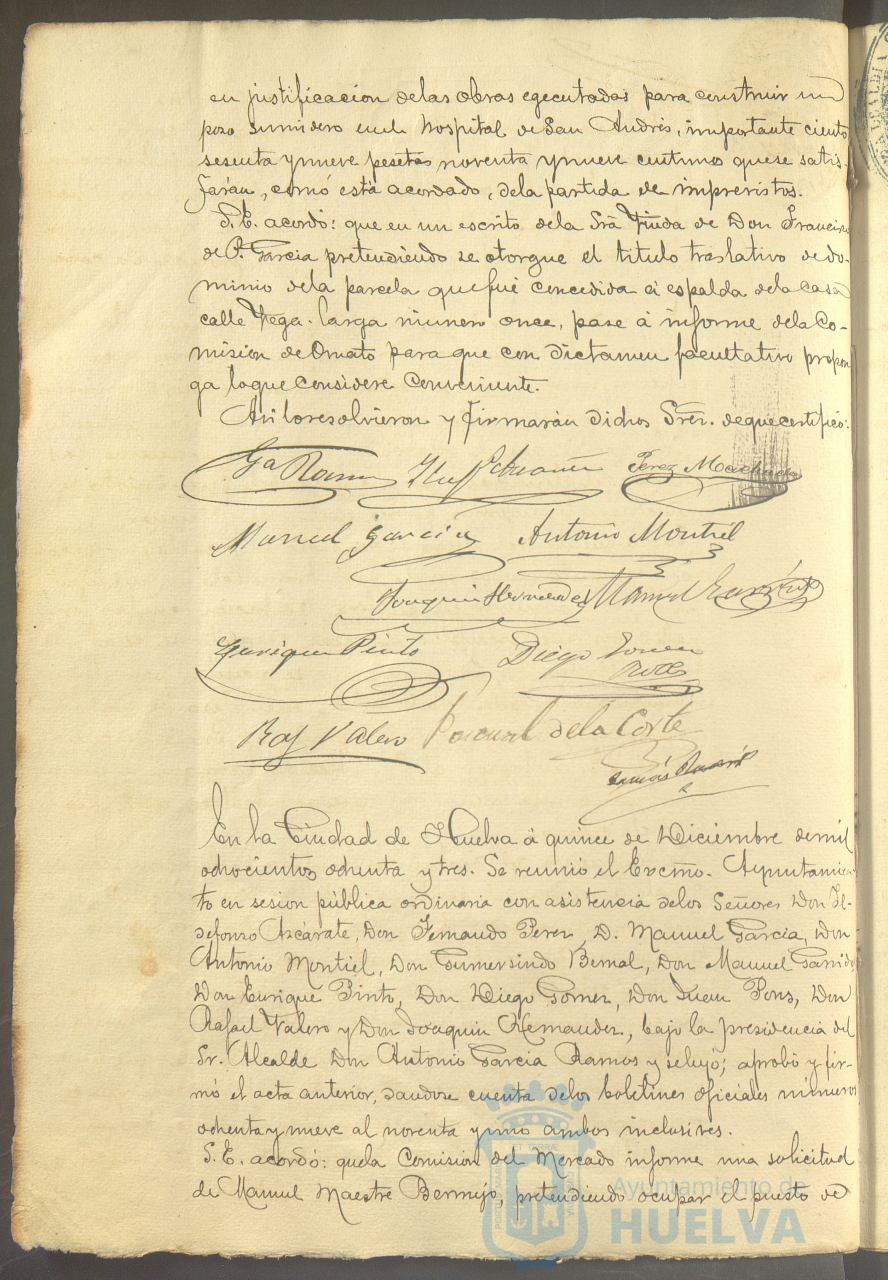 en justificacion delas obras egecutadas para construir un
pozo sumidero en el Hospital de San Andrés, importante ciento
sesenta y nueve pesetas noventa y nueve centimos que se satis-
farán, como está acordado, dela partida de imprevistos.
S. E. acordó: que en un escrito dela Srã Viuda de Don Francisco
de P. Garcia pretendiendo se otorgue el titulo traslativo de do-
minio dela parcela que fué concedida á espalda dela casa
calle Vega-larga número once, pase á informe dela Co-
mision de Ornato para que con dictamen facultativo propon
ga lo que considere conveniente.
Asi lo resolvieron y firmarán dichos Sres. de que certifico.
Gª Ramos Perez Machado
Manuel Garcia Antonio Montiel
Joaquin Hernandez Manuel Garrido
Enrique Pinto Diego Gomez
Raf Valero Pascual dela Corte
En la Ciudad de Huelva á quince de Diciembre de mil
ochocientos ochenta y tres. Se reunió el Excmo. Ayuntamien-
to en sesion pública ordinaria con asistencia delos Señores Don Il-
defonso Azcárate, Don Fernando Perez, D. Manuel Garcia, Don
Antonio Montiel, Don Gumersindo Bernal, Don Manuel Garrido
Don Enrique Pinto, Don Diego Gomez, Don Juan Pons, Don
Rafael Valero y Don Joaquin Hernandez, bajo la presidencia del
Sr. Alcalde Don Antonio Garcia Ramos y se leyó; aprobó y fir-
mó el acta anterior, dandose cuenta delos boletines oficiales números
ochenta y nueve al noventa y uno ambos inclusives.
S. E. acordó: que la Comision del Mercado informe una solicitud
de Manuel Maestre Bermejo, pretendiendo ocupar el puesto de
Ayuntamiento de
HUELVA